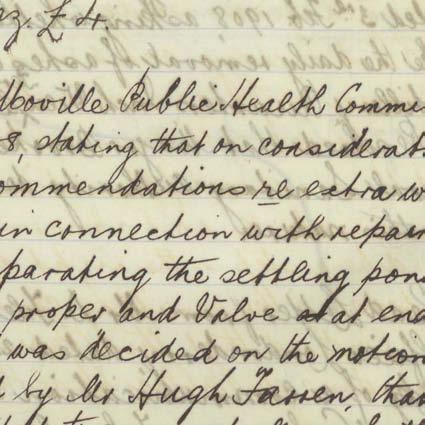 z. £4.
Moville Public Health Comm
8, stating that on considerat
ommendations re extra w
in connection with repair
parating the settling pon
proper and Valve at end
was decided on the motion
by Mr Hugh Farren, tha